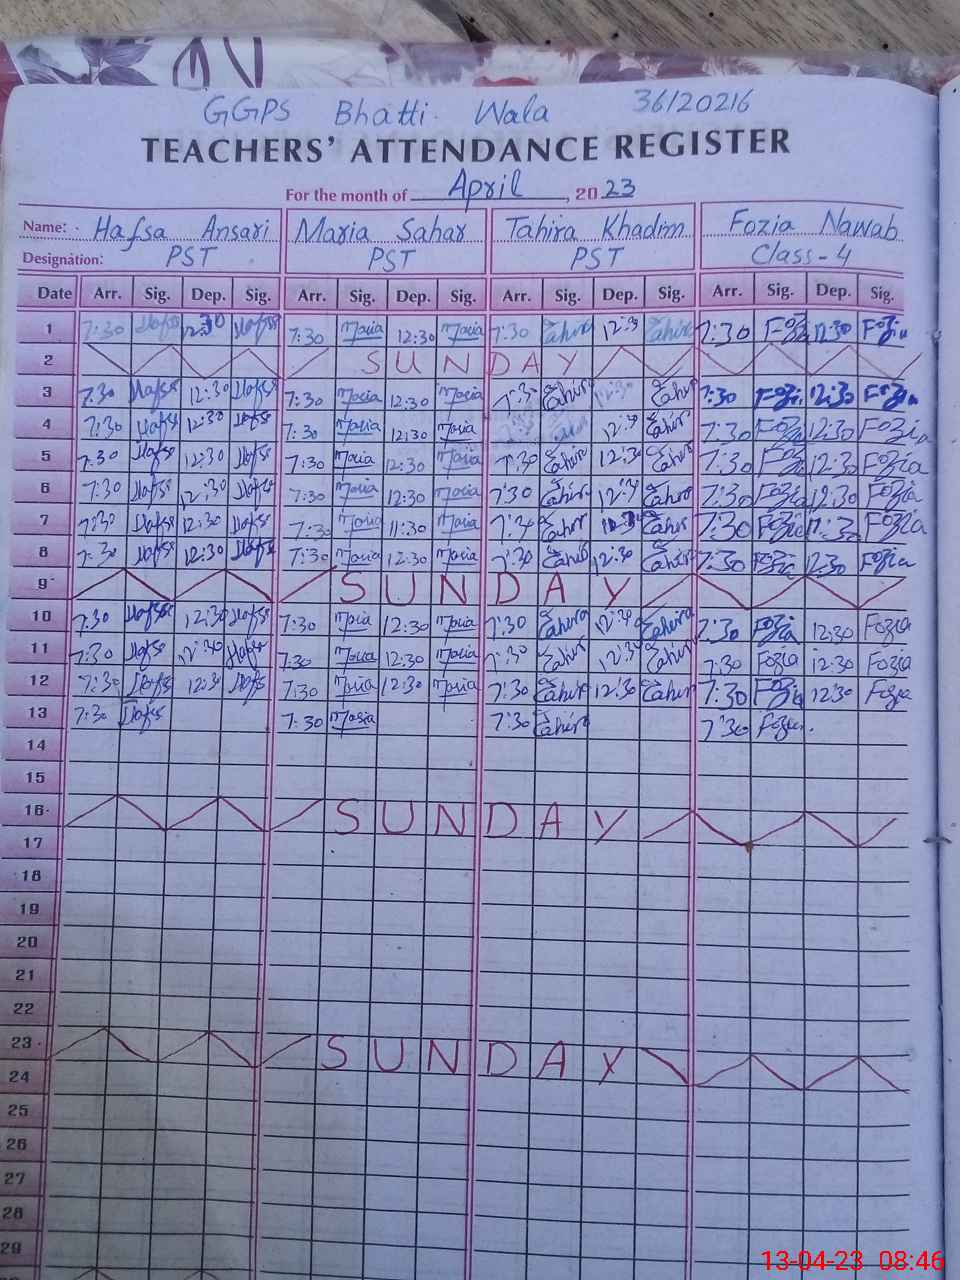 GGPS Bhatti Wala 36120216
TEACHERS' ATTENDANCE REGISTER
For the month of April, 2023
Name: Hafsa Ansari Maria Sahar Tahira Khadim Fozia Nawab
Designation: PST PST PST Class-4
Date Arr. Sig. Dep. Sig. Arr. Sig. Dep. Sig. Arr. Sig. Dep. Sig. Arr. Sig. Dep. Sig.
1 7:30 Hafsa 12:30 Hafsa 7:30 Maria 12:30 Maria 7:30 Tahira 12:30 Tahira 7:30 Fozia 12:30 Fozia
2 SUNDAY
3 7:30 Hafsa 12:30 Hafsa 7:30 Maria 12:30 Maria 7:30 Tahira 12:30 Tahira 7:30 Fozia 12:30 Fozia
4 7:30 Hafsa 12:30 Hafsa 7:30 Maria 12:30 Maria 12:30 Tahira 7:30 Fozia 12:30 Fozia
5 7:30 Hafsa 12:30 Hafsa 7:30 Maria 12:30 Maria 7:30 Tahira 12:30 Tahira 7:30 Fozia 12:30 Fozia
6 7:30 Hafsa 12:30 Hafsa 7:30 Maria 12:30 Maria 7:30 Tahira 12:30 Tahira 7:30 Fozia 12:30 Fozia
7 7:30 Hafsa 12:30 Hafsa 7:30 Maria 11:30 Maria 7:30 Tahira Tahira 7:30 Fozia Fozia
8 7:30 Hafsa 12:30 Hafsa 7:30 Maria 12:30 Maria 7:30 Tahira 12:30 Tahira 7:30 Fozia 12:30 Fozia
9 SUNDAY
10 7:30 Hafsa 12:30 Hafsa 7:30 Maria 12:30 Maria 7:30 Tahira 12:30 Tahira 7:30 Fozia 12:30 Fozia
11 7:30 Hafsa 12:30 Hafsa 7:30 Maria 12:30 Maria 7:30 Tahira 12:30 Tahira 7:30 Fozia 12:30 Fozia
12 7:30 Hafsa 12:30 Hafsa 7:30 Maria 12:30 Maria 7:30 Tahira 12:30 Tahira 7:30 Fozia 12:30 Fozia
13 7:30 Hafsa 7:30 Maria 7:30 Tahira 7:30 Fozia
14
15
16 SUNDAY
17
18
19
20
21
22
23 SUNDAY
24
25
26
27
28
29
13-04-23 08:46